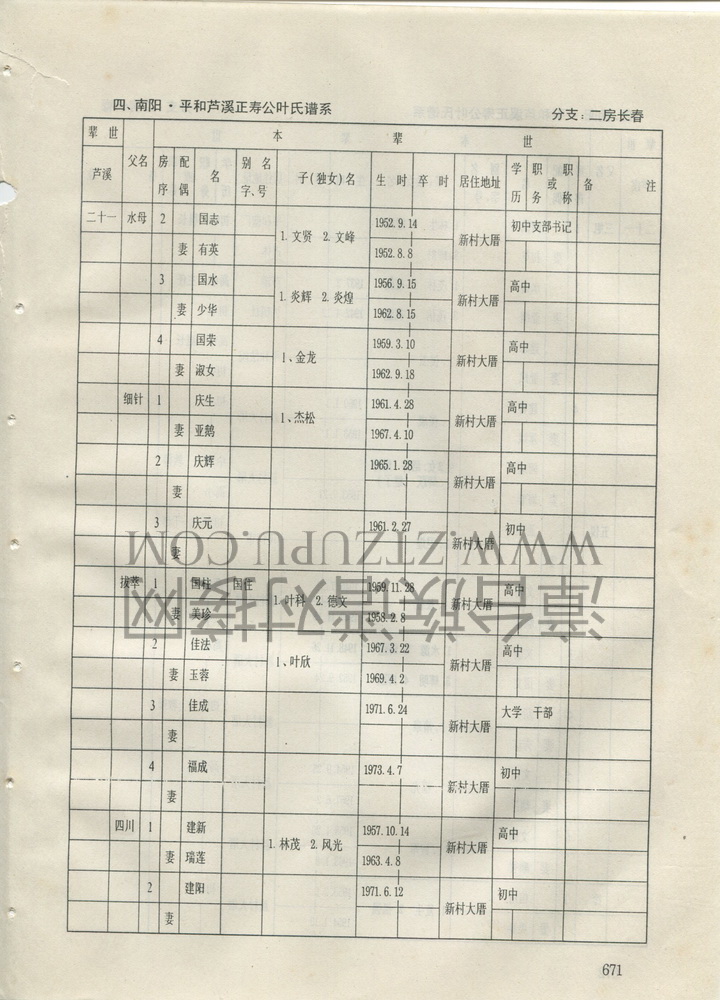 四、南阳·平和芦溪正寿公叶氏谱系 分支：二房长春
辈世 本 辈 世
芦溪 父名 房序 配偶 名 别名字、号 子(独女)名 生时 卒时 居住地址 学历 职务或职称 备注
二十一 水母 2 国志 1.文贤 2.文峰 1952.9.14 新村大厝 初中 支部书记
妻 有英 1952.8.8
3 国水 1.炎辉 2.炎煌 1956.9.15 新村大厝 高中
妻 少华 1962.8.15
4 国荣 1、金龙 1959.3.10 新村大厝 高中
妻 淑女 1962.9.18
细针 1 庆生 1、杰松 1961.4.28 新村大厝 高中
妻 亚鹅 1967.4.10
2 庆辉 1965.1.28 新村大厝 高中
妻
3 庆元 1961.2.27 新村大厝 初中
妻
拔萃 1 国柱 国任 1.叶科 2.德文 1959.11.28 新村大厝 高中
妻 美珍 1958.2.8
2 佳法 1、叶欣 1967.3.22 新村大厝 高中
妻 玉蓉 1969.4.2
3 佳成 1971.6.24 新村大厝 大学 干部
妻
4 福成 1973.4.7 新村大厝 初中
妻
四川 1 建新 1.林茂 2.风光 1957.10.14 新村大厝 高中
妻 瑞莲 1963.4.8
2 建阳 1971.6.12 新村大厝 初中
妻
671
WWW.ZTZUPU.COM
漳台族谱对接网